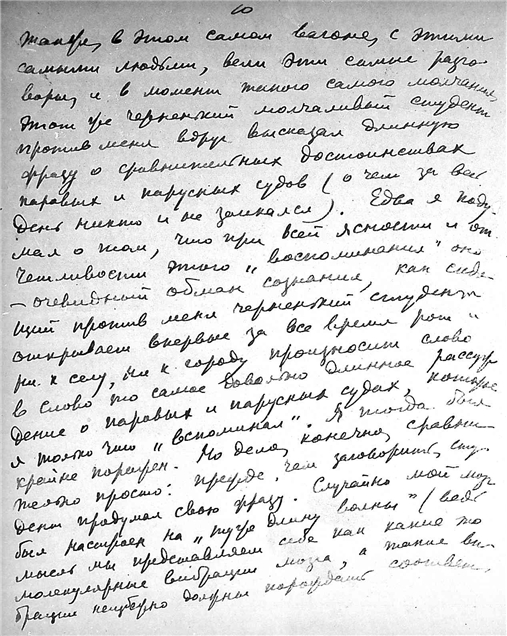 60
также, в этом самом вагоне, с этими
самыми людьми, вели эти самые разго-
воры, и в момент такого самого молчания,
этот же черненький молчаливый студент
против меня вдруг высказал длинную
фразу о сравнительных достоинствах
паровых и парусных судов (о чем за весь
день никто и не заикался). Едва я поду-
мал о том, что при всей ясности и от-
четливости этого "воспоминания" оно
— очевидный обман сознания, как сидя-
щий против меня черненький студент
открывает впервые за все время рот и
ни к селу, ни к городу произносит слово
в слово то самое довольно длинное рассуж-
дение о паровых и парусных судах, которое
я только что "вспоминал". Я тогда был
крайне поражен. Но дело, конечно, сравни-
тельно просто: прежде, чем заговорить, сту-
дент продумал свою фразу. Случайно мой мозг
был настроен на "ту же длину волны" (ведь
мысль мы представляем себе как какие то
молекулярные вибрации мозга, а такие ви-
брации неизбежно должны порождать соответ-